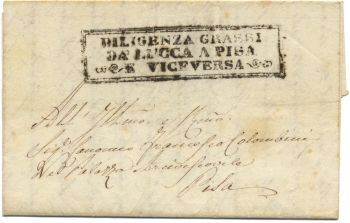 DILIGENZA GRASSI
DA' LUCCA A PISA
E VICEVERSA
All' Illmo e Rmo
Sigr Canonico Francesco Colombini
Nel Palazzo Arcivescovile
Pisa